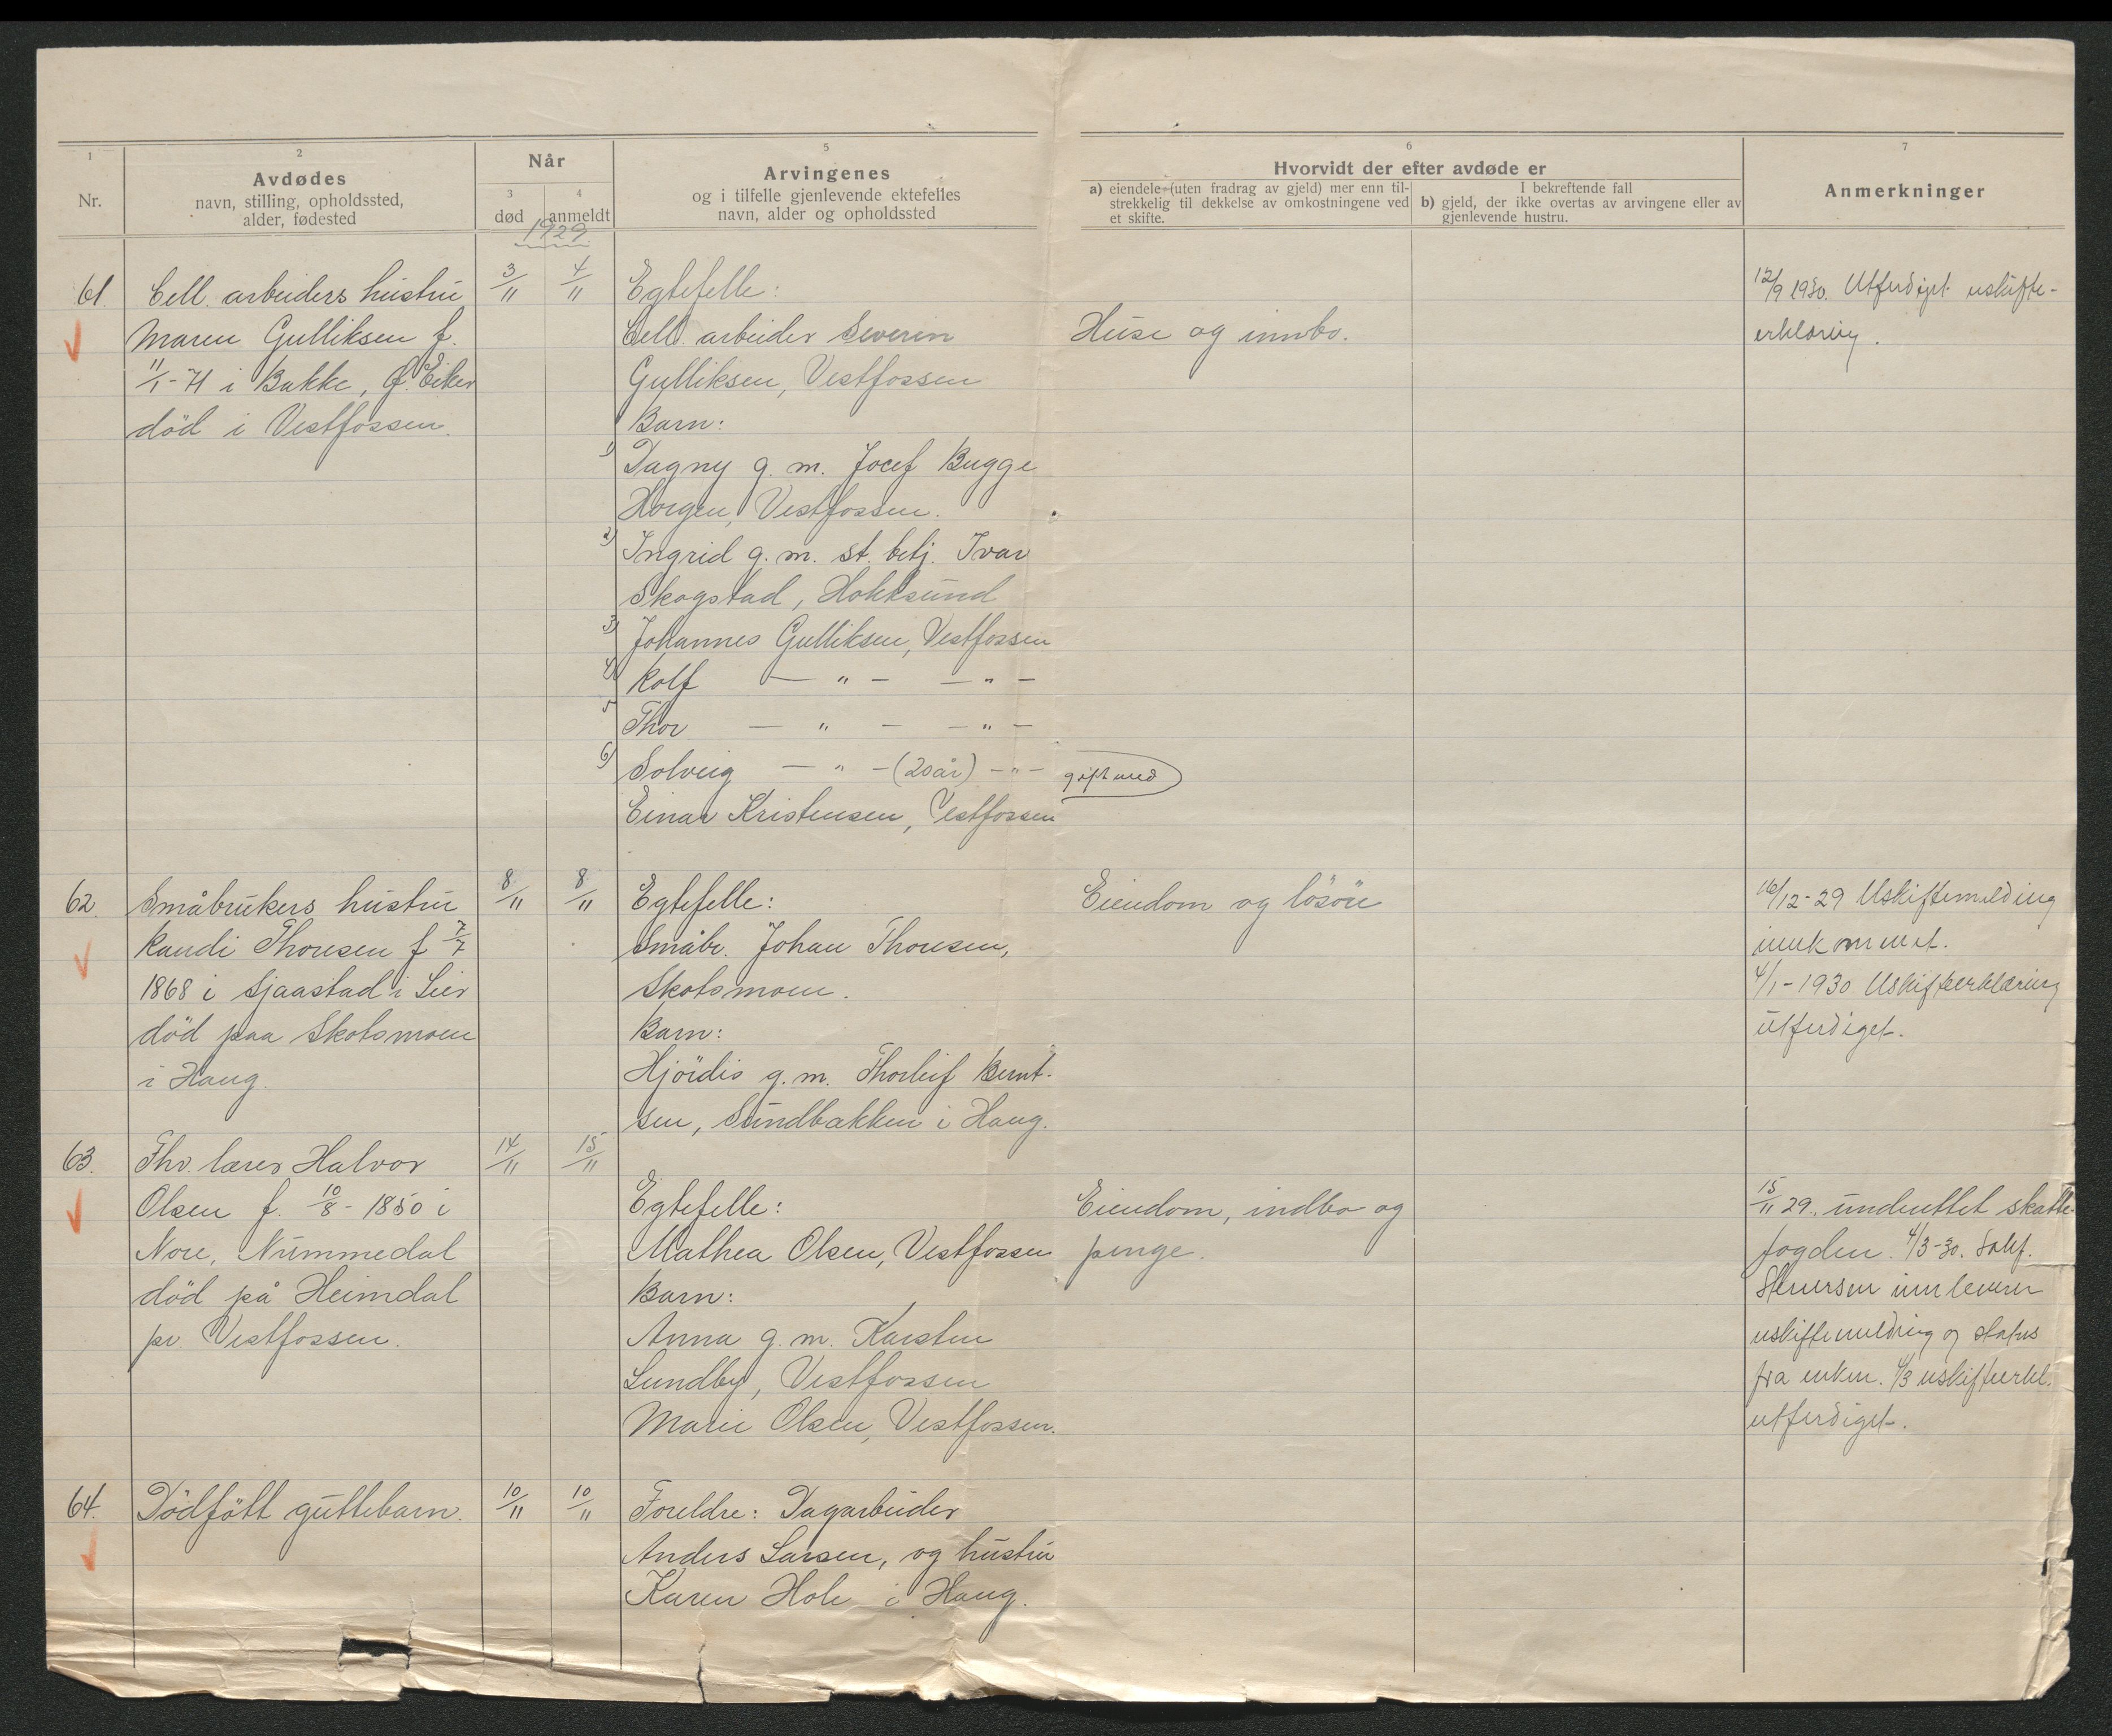 1
Nr.
2
Avdødes
navn, stilling, opholdssted,
alder, fødested
Når
3
død
4
anmeldt
5
Arvingenes
og i tilfelle gjenlevende ektefelles
navn, alder og opholdssted
6
Hvorvidt der efter avdøde er
a) eiendele (uten fradrag av gjeld) mer enn til-
strekkelig til dekkelse av omkostningene ved
et skifte.
I bekreftende fall
b) gjeld, der ikke overtas av arvingene eller av
gjenlevende hustru.
7
Anmerkninger
1929
61.
Cell. arbeiders hustru
Maren Gulliksen f.
11/1-71 i Bakke, Ø. Eiker
död i Vestfossen.
3/11
4/11
Egtefelle:
Cell. arbeider Severin
Gulliksen, Vestfossen
Barn:
1) Dagny g. m. Josef Bugge
Horgen, Vestfossen.
2) Ingrid g. m. st. betj. Ivar
Skogstad, Hokksund
3) Johannes Gulliksen, Vestfossen
4) Rolf — " — — " —
5 Thor — " — — " —
6) Solveig — " — (20 år) — " — gift med
Einar Kristensen, Vestfossen
Huse og innbo.
12/9 1930. Utferdiget uskifte-
erklæring.
62.
Småbrukers hustru
Randi Thorsen f 7/7
1868 i Sjaastad i Lier
död paa Skotsmoen
i Haug.
8/11
8/11
Egtefelle:
Småbr. Johan Thorsen,
Skotsmoen.
Barn:
Hjördis g. m. Thorleif Bernt-
sen, Sundbakken i Haug.
Eiendom og lösöre
16/12-29 Uskiftemelding
innkommet.
4/1-1930 Uskifteerklæring
utferdiget.
63.
Fhv. lærer Halvor
Olsen f. 10/8-1850 i
Nore, Nummedal
död på Heimdal
pr Vestfossen.
14/11
15/11
Egtefelle:
Mathea Olsen, Vestfossen
Barn:
Anna g. m. Karsten
Lundby, Vestfossen
Marie Olsen, Vestfossen.
Eiendom, indbo og
penge.
15/11 29. underettet skatte-
fogden. 4/3-30. Sakf.
innleverer
uskiftemelding og status
fra enken. 4/3 uskifteerkl.
utferdiget.
64.
Dödfött guttebarn.
10/11
10/11
Foreldre: Dagarbeider
Anders Larsen, og hustru
Karen Hole i Haug.